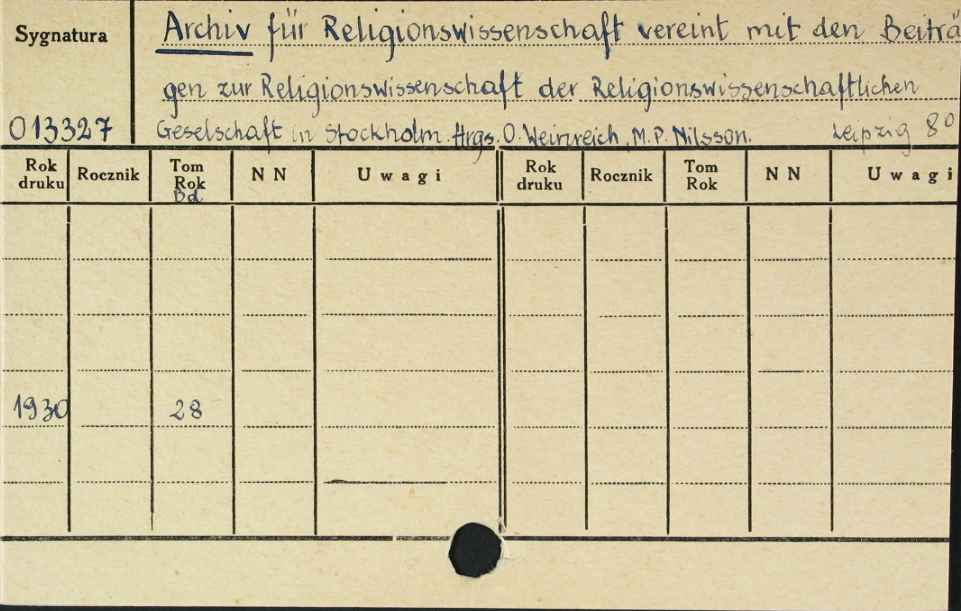 Sygnatura
Archiv für Religionswissenschaft vereint mit den Beiträ
gen zur Religionswissenschaft der Religionswissenschaftlichen
013327 Geselschaft in Stockholm. Hrgs. O. Weinreich, M.P. Nilsson. Leipzig 8°
Rok druku Rocznik Tom Rok Bd NN Uwagi Rok druku Rocznik Tom Rok NN Uwagi
1930 28